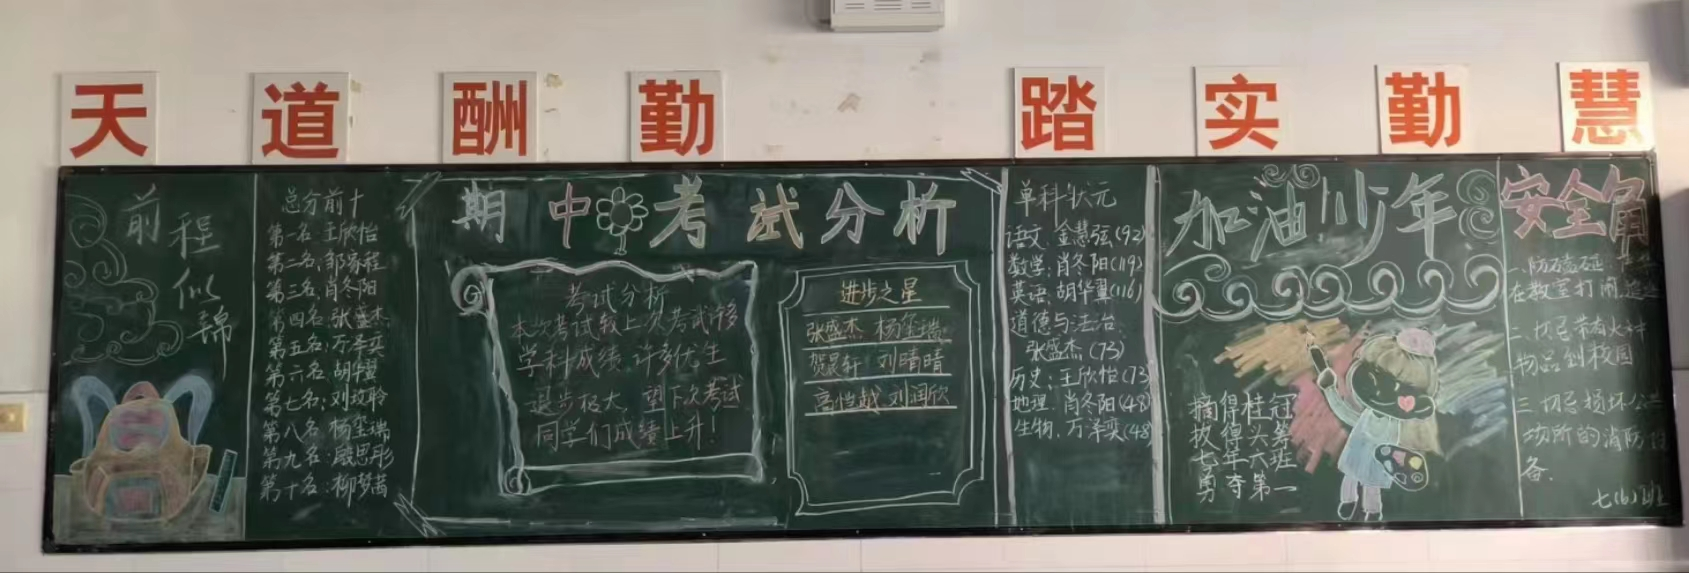 天道酬勤 踏实勤慧
前程似锦
总分前十
第一名:王欣怡
第二名:邹家程
第三名:肖冬阳
第四名:张盛杰
第五名:万泽奕
第六名:胡华翼
第七名:刘玟聆
第八名:杨玺瑞
第九名:殷思彤
第十名:柳梦茜
期中考试分析
考试分析
本次考试较上次考试许多
学科成绩,许多优生
退步极大,望下次考试
同学们成绩上升!
进步之星
张盛杰 杨玺瑞
贺晨轩 刘晴晴
高恺越 刘润欣
单科状元
语文:金慧弦(92)
数学:肖冬阳(119)
英语:胡华翼(116)
道德与法治:
张盛杰(73)
历史:王欣怡(73)
地理:肖冬阳(48)
生物:万泽奕(48)
加油少年
摘得桂冠
拔得头筹
七年六班
勇夺第一
安全角
一.防磕碰
在教室打闹,追逐
二.切忌带有火种
物品到校园
三.切忌损坏公共
场所的消防设
备.
七(6)班